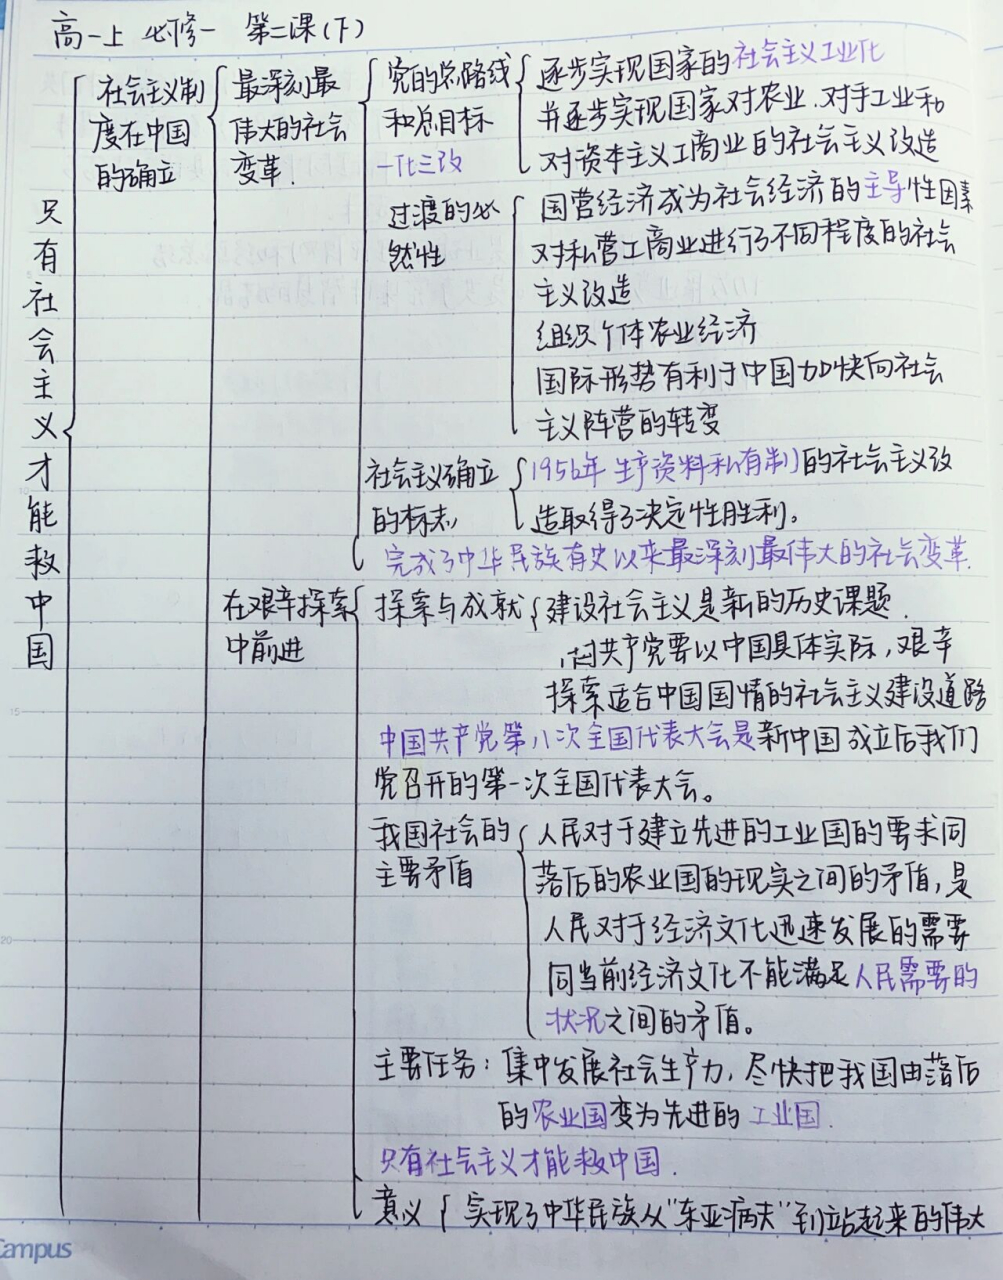 高一上 必修一 第二课(下)
只有社会主义才能救中国
社会主义制
度在中国
的确立
最深刻最
伟大的社会
变革.
党的总路线
和总目标
一化三改
逐步实现国家的社会主义工业化
并逐步实现国家对农业.对手工业和
对资本主义工商业的社会主义改造
过渡的必
然性
国营经济成为社会经济的主导性因素
对私营工商业进行了不同程度的社会
主义改造
组织个体农业经济
国际形势有利于中国加快向社会
主义阵营的转变
社会主义确立
的标志
1956年 生产资料私有制的社会主义改
造取得了决定性胜利。
完成了中华民族有史以来最深刻最伟大的社会变革.
在艰辛探索
中前进
探索与成就
建设社会主义是新的历史课题.
共产党要以中国具体实际,艰辛
探索适合中国国情的社会主义建设道路
中国共产党第八次全国代表大会是新中国成立后我们
党召开的第一次全国代表大会。
我国社会的
主要矛盾
人民对于建立先进的工业国的要求同
落后的农业国的现实之间的矛盾,是
人民对于经济文化迅速发展的需要
同当前经济文化不能满足人民需要的
状况之间的矛盾。
主要任务:集中发展社会生产力,尽快把我国由落后
的农业国变为先进的工业国.
只有社会主义才能救中国.
意义
实现了中华民族从"东亚病夫"到站起来的伟大
Campus